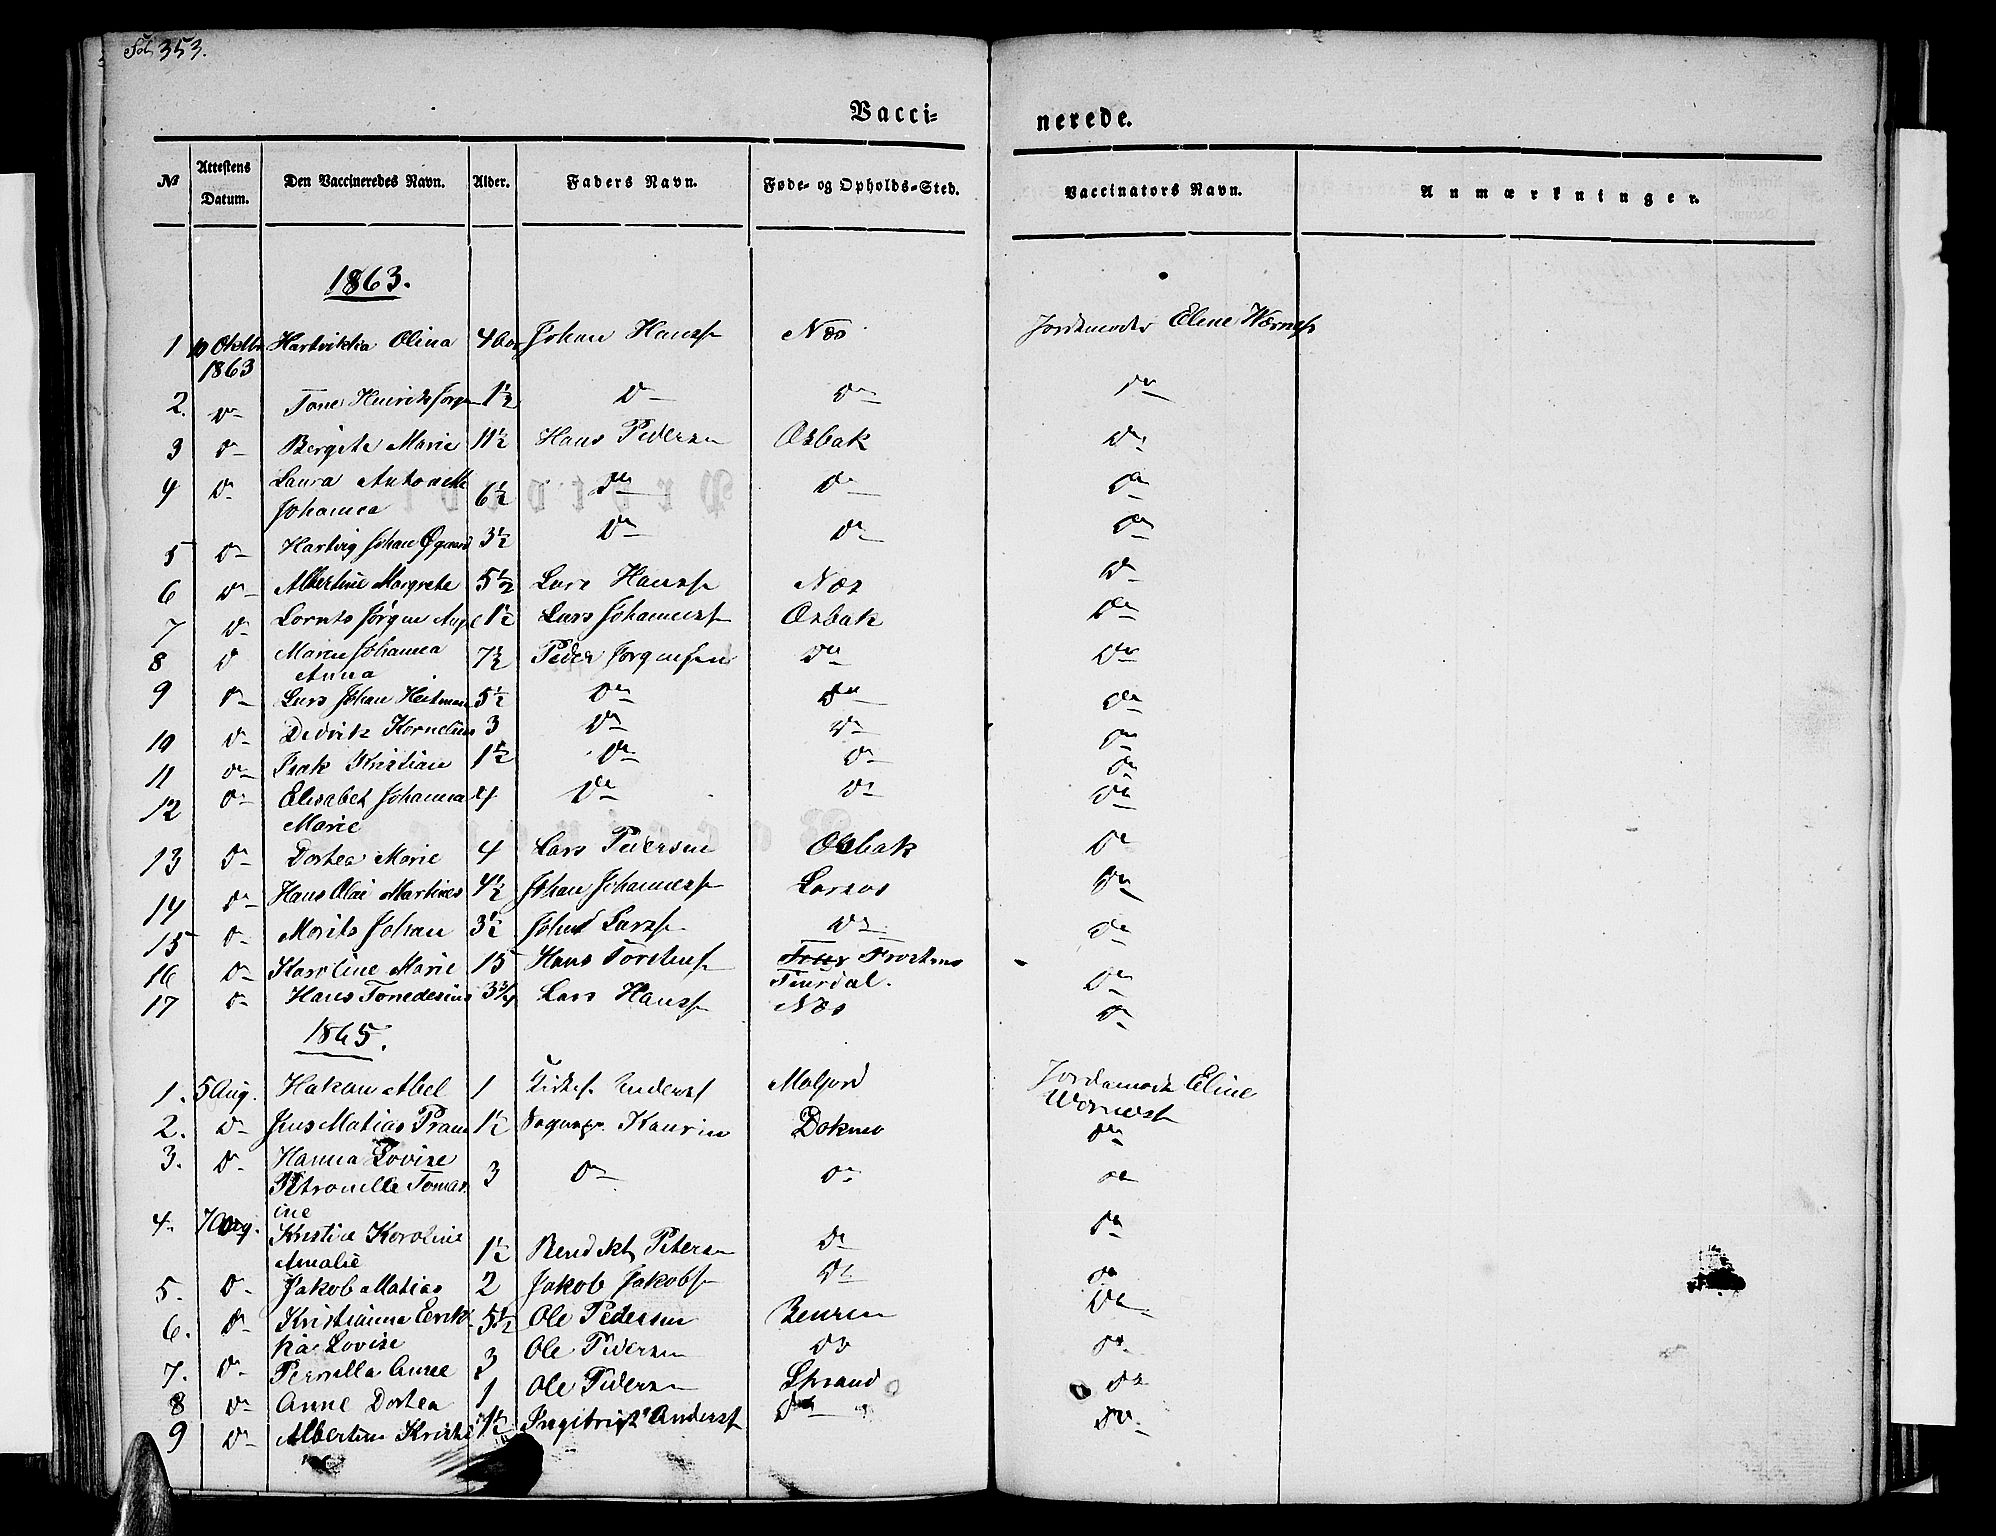 Fol. 353.
Vacci- nerede.
№ Attestens Datum. Den Vaccineredes Navn. Alder. Faders Navn. Føde- og Opholds-Sted. Vaccinators Navn. Anmærkninger.
1863.
1 10 Oktbr 1863 Hartvikka Olina 4 Johan Hanss Næs Jordemoder Eline Wærness
2. do Tone Henrik Jørgen 1½ do do do
3 do Bergete Marie 11½ Hans Pedersen Osbak do
4 do Laura Antonette Johanna 6½ do do do
5 do Hartvig Johan 3½ do do do
6 do Albertine Margrete 5½ Lars Hanss Næs do
7 do Lornts Jørgen Aug 1½ Lars Johaness Osbak do
8 do Maren Johanna Anna 7½ Peder Jørgensen do do
9 do Lars Johan Heitman 5½ do do do
10 do Didrik Kornelius 3 do do do
11 do Isak Kristian 1½ do do do
12 do Elisabet Johanna Marie 4 do do do
13 do Dortea Marie 4 Lars Pedersen Osbak do
14 do Hans Olai Martines 4½ Johan Johaness Larsos do
15 do Morits Johan 3½ Johan Larss do do
16 do Karoline Marie 15 Hans Torstens Frostmo Tiurdal. do
17 do Hans Tonedesius 3¾ Lars Hanss Næs do
1865.
1. 5 Aug. Hakan Abel 1 Anderss Melfjord Jordemoder Eline Wærness
2. do Jens Matias Pram 1½ Sognepr. Kaurin Dokmo do
3. do Hanna Lovise Petronelle Tomasine 3 do do do
4. 7 Aug. Kristine Karoline Amalie 1½ Bendikt Petersen do do
5. do Jakob Matias 2 Jakob Jakobs do do
6. do Kristianna Erikka Lovise 5½ Ole Pedersen do
7. do Pernilla Anne 3 Ole Pedersen do do
8 do Anne Dortea 1 Ole Pedersen Strand do
9 do Albertine 1½ Ingebrigt Anderss do do